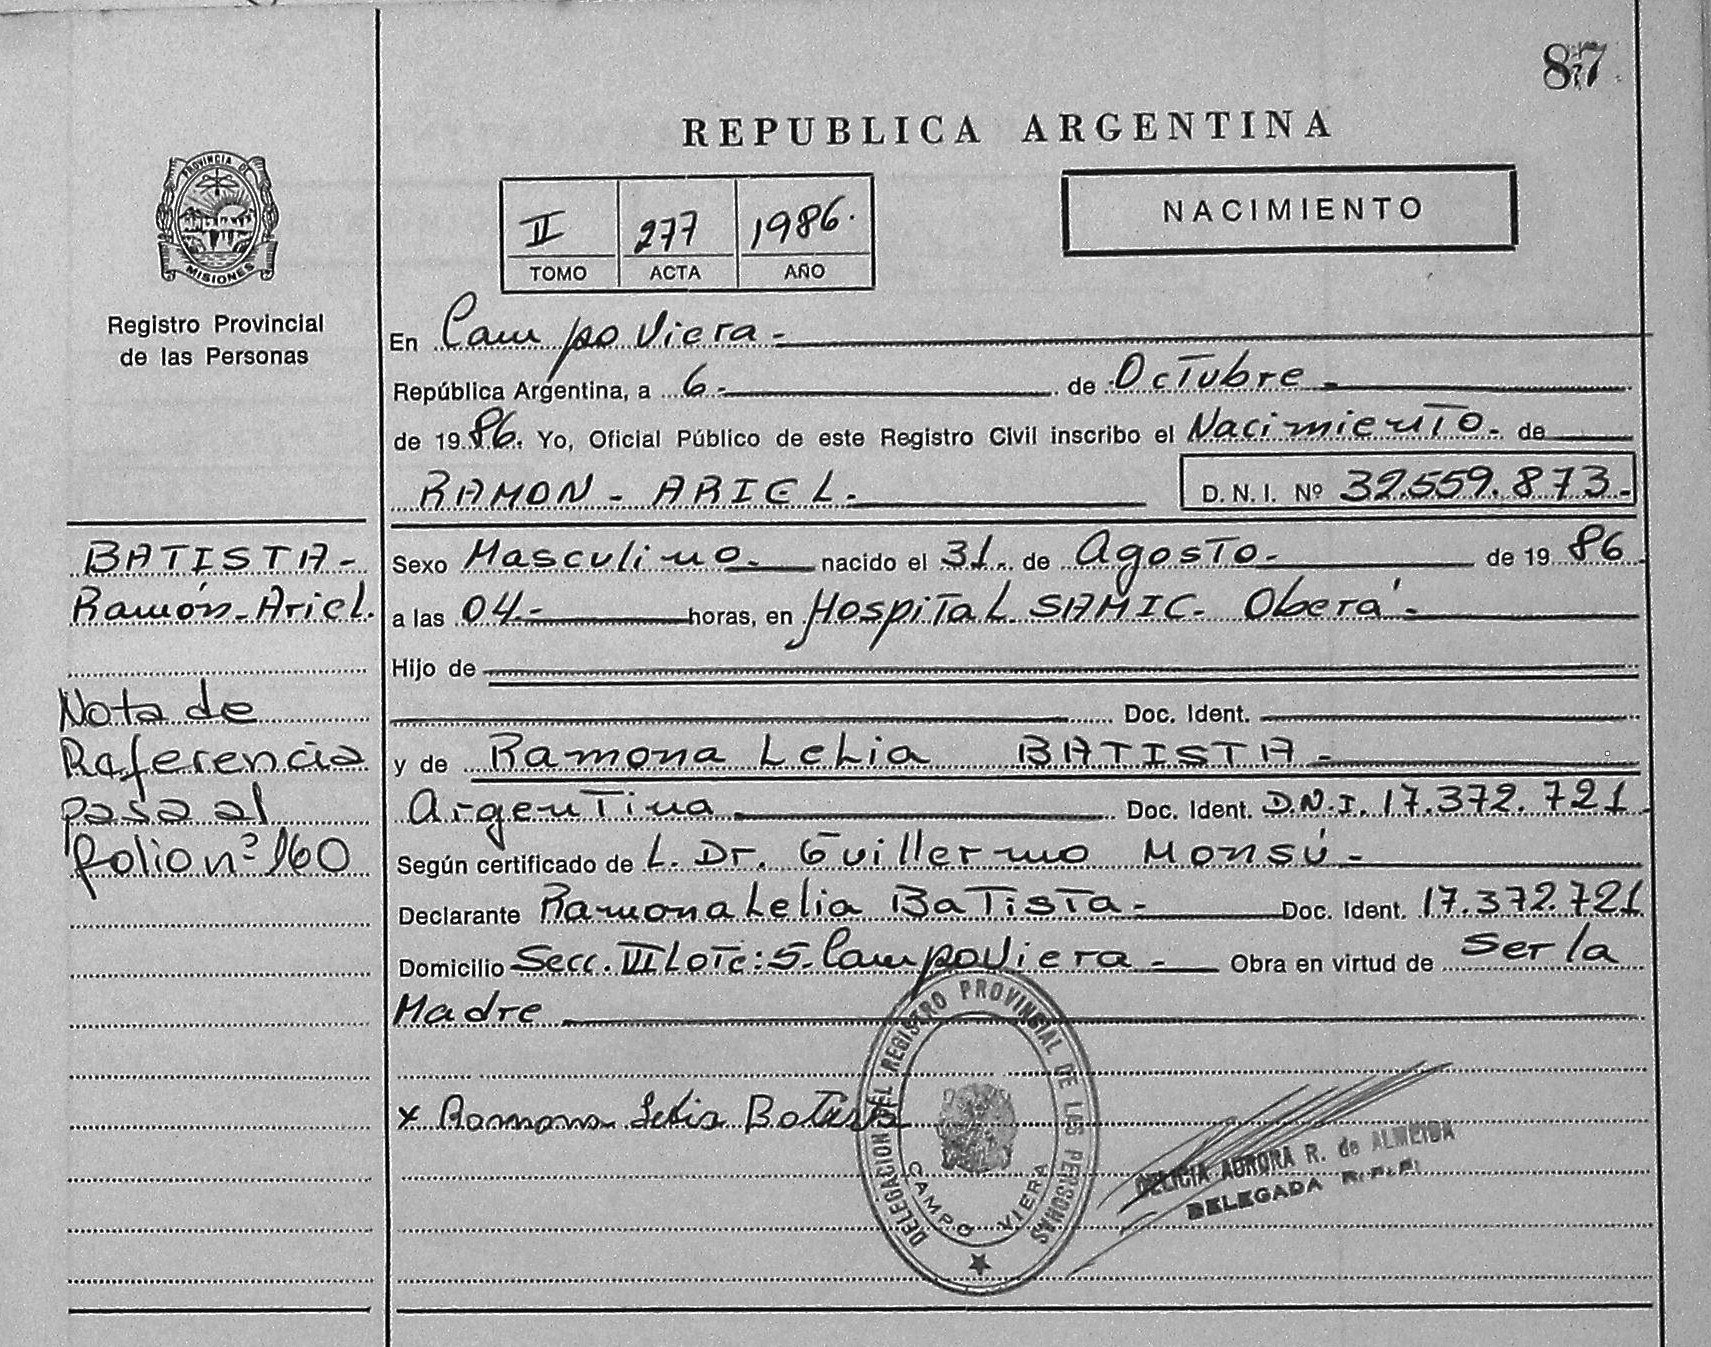 87
REPUBLICA ARGENTINA
PROVINCIA DE
MISIONES
Registro Provincial
de las Personas
II 277 1986.
TOMO ACTA AÑO
NACIMIENTO
En Campo Viera-
República Argentina, a 6- de Octubre-
de 1986. Yo, Oficial Público de este Registro Civil inscribo el Nacimiento- de
RAMON- ARIEL- D. N. I. Nº 32.559.873-
BATISTA-
Ramón-Ariel.
Nota de
Referencia
pasa al
folio nº 160
Sexo Masculino- nacido el 31- de Agosto- de 1986
a las 04- horas, en Hospital SAMIC- Oberá-
Hijo de
Doc. Ident.
y de Ramona Lelia BATISTA-
Argentina Doc. Ident. D.N.I. 17.372.721-
Según certificado de L. Dr. Guillermo Monsú-
Declarante Ramona Lelia Batista- Doc. Ident. 17.372.721
Domicilio Secc. VII Lote: 5- Campo Viera- Obra en virtud de Ser la
Madre
x Ramona Lelia Batista
DELEGACION DEL REGISTRO PROVINSIAL DE LAS PERSONAS
CAMPO VIERA
DELICIA AURORA R. de ALMEIDA
DELEGADA R.P.P.